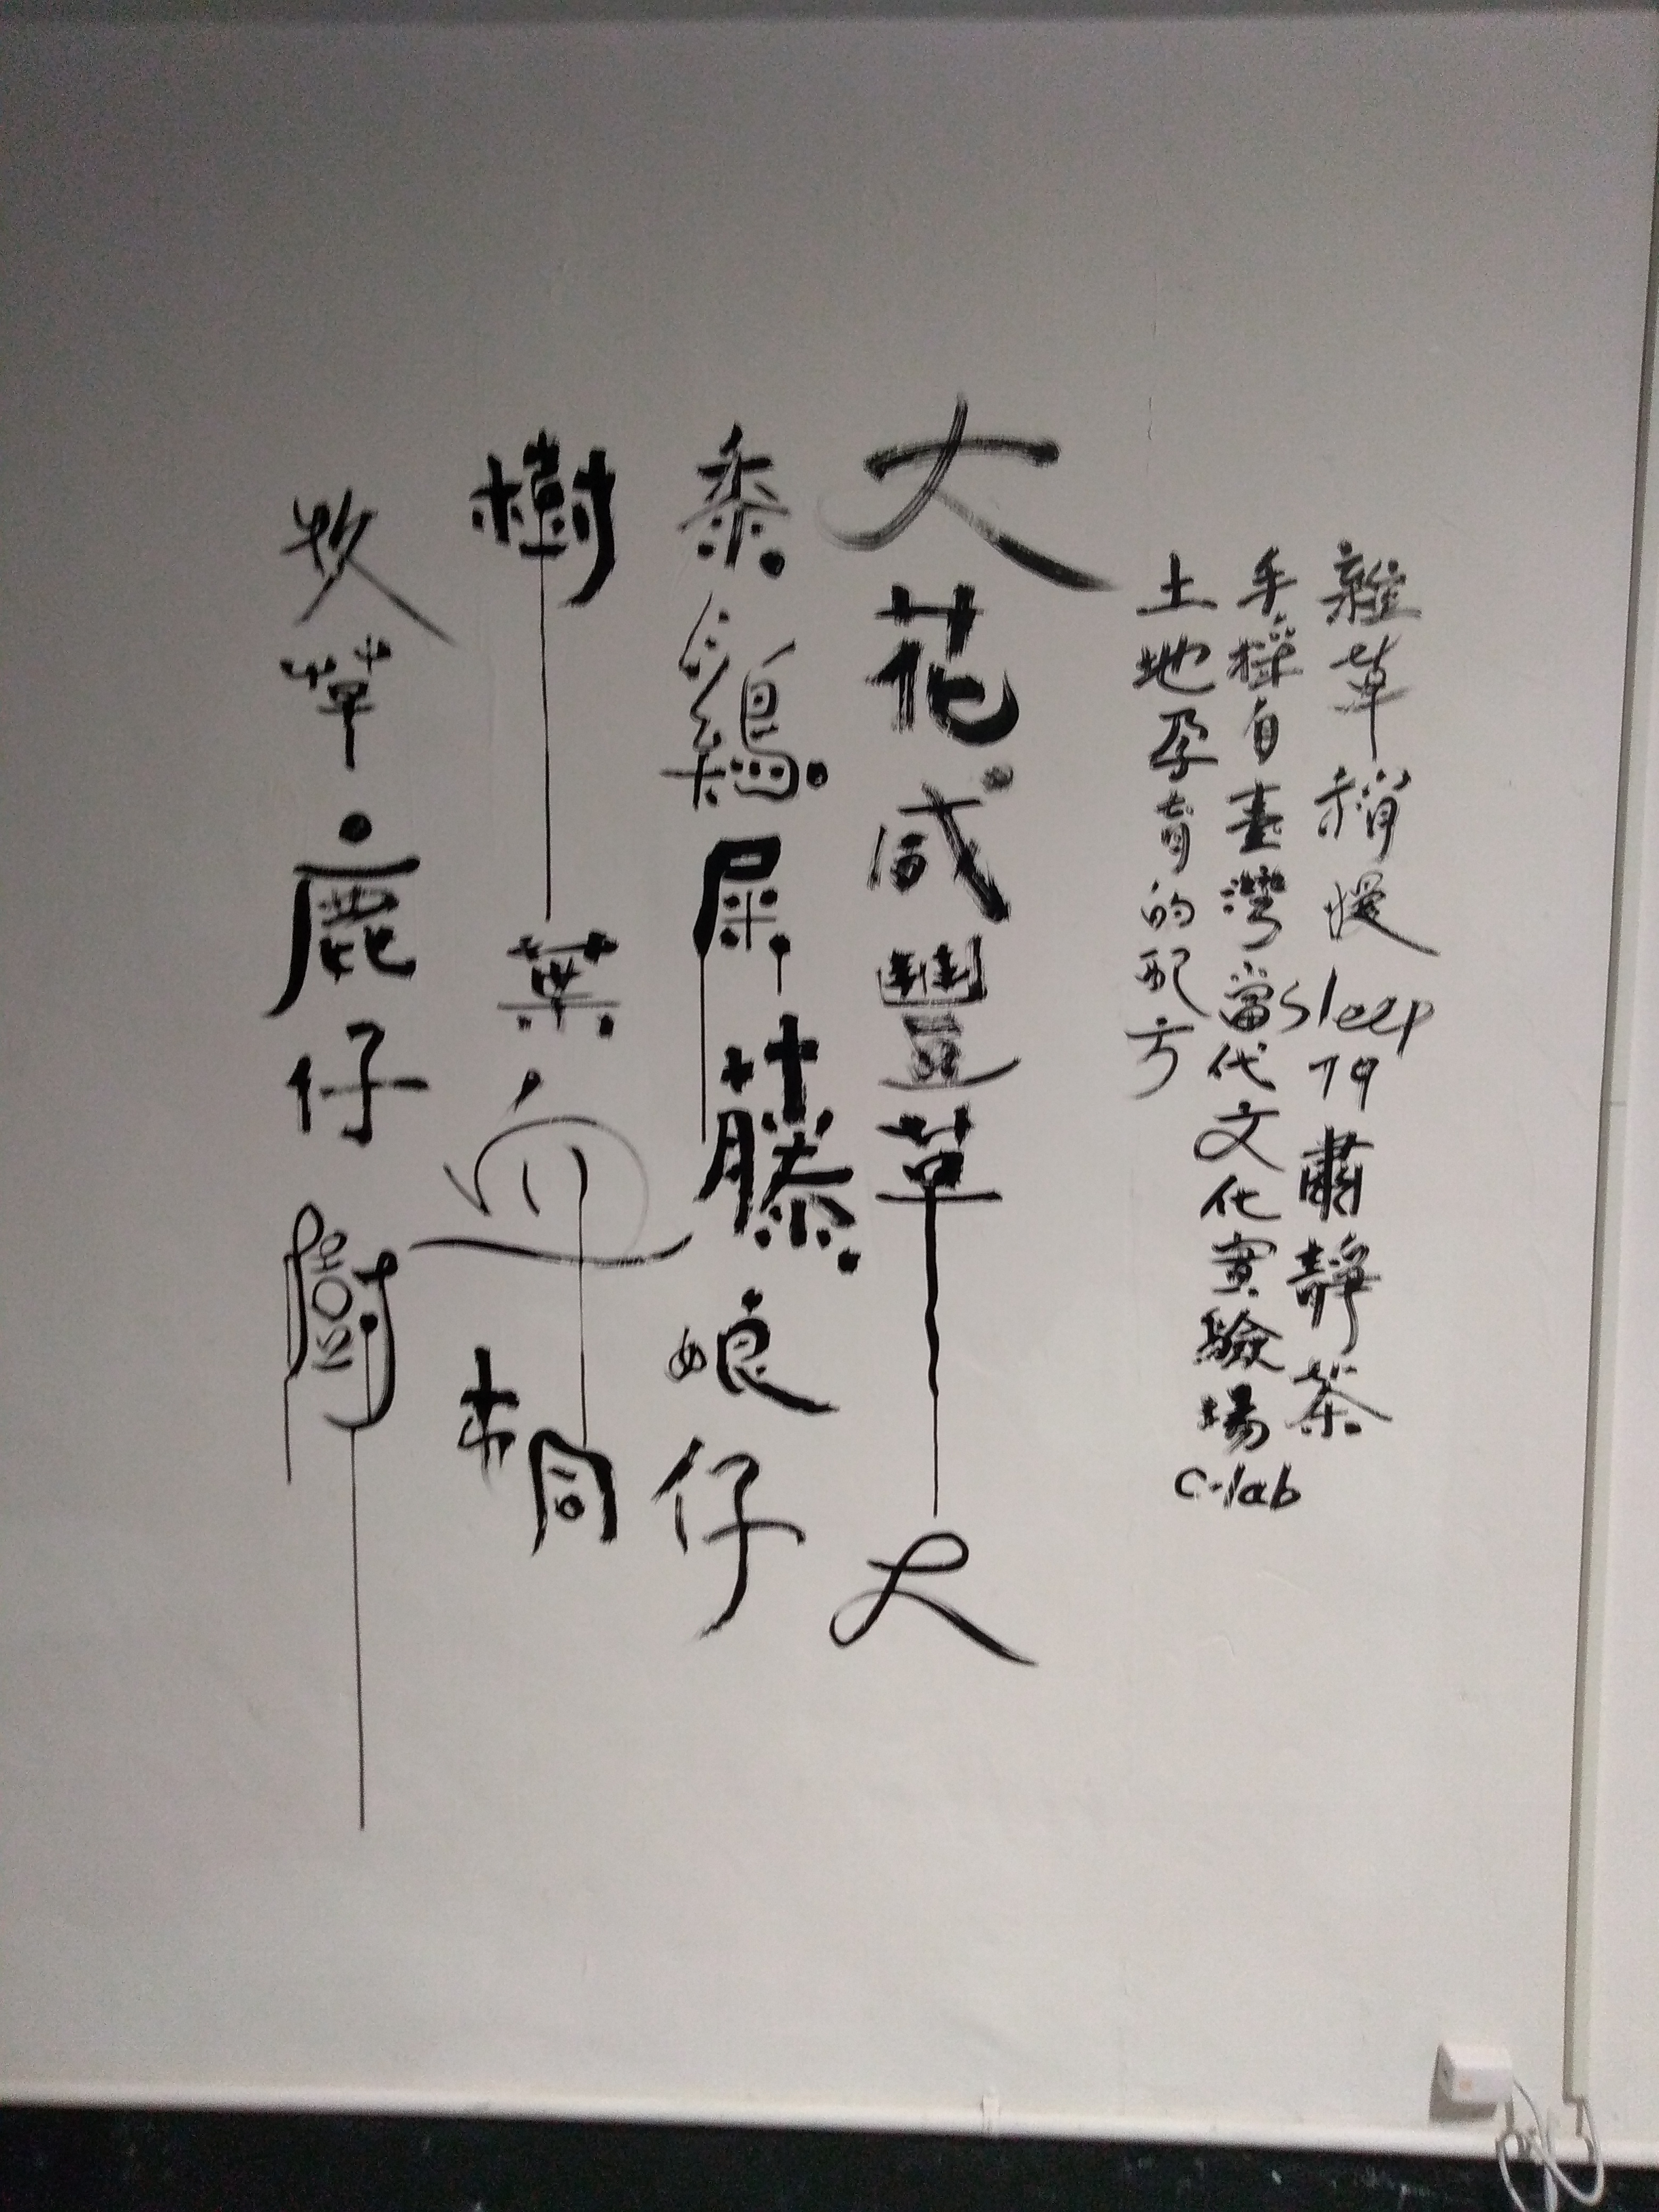 雜草稍慢sleep79肅靜茶
手採自臺灣當代文化實驗場c-lab
土地孕育的配方
大花咸豐草
黍雞屎藤娘仔
樹葉血桐
牧草鹿仔